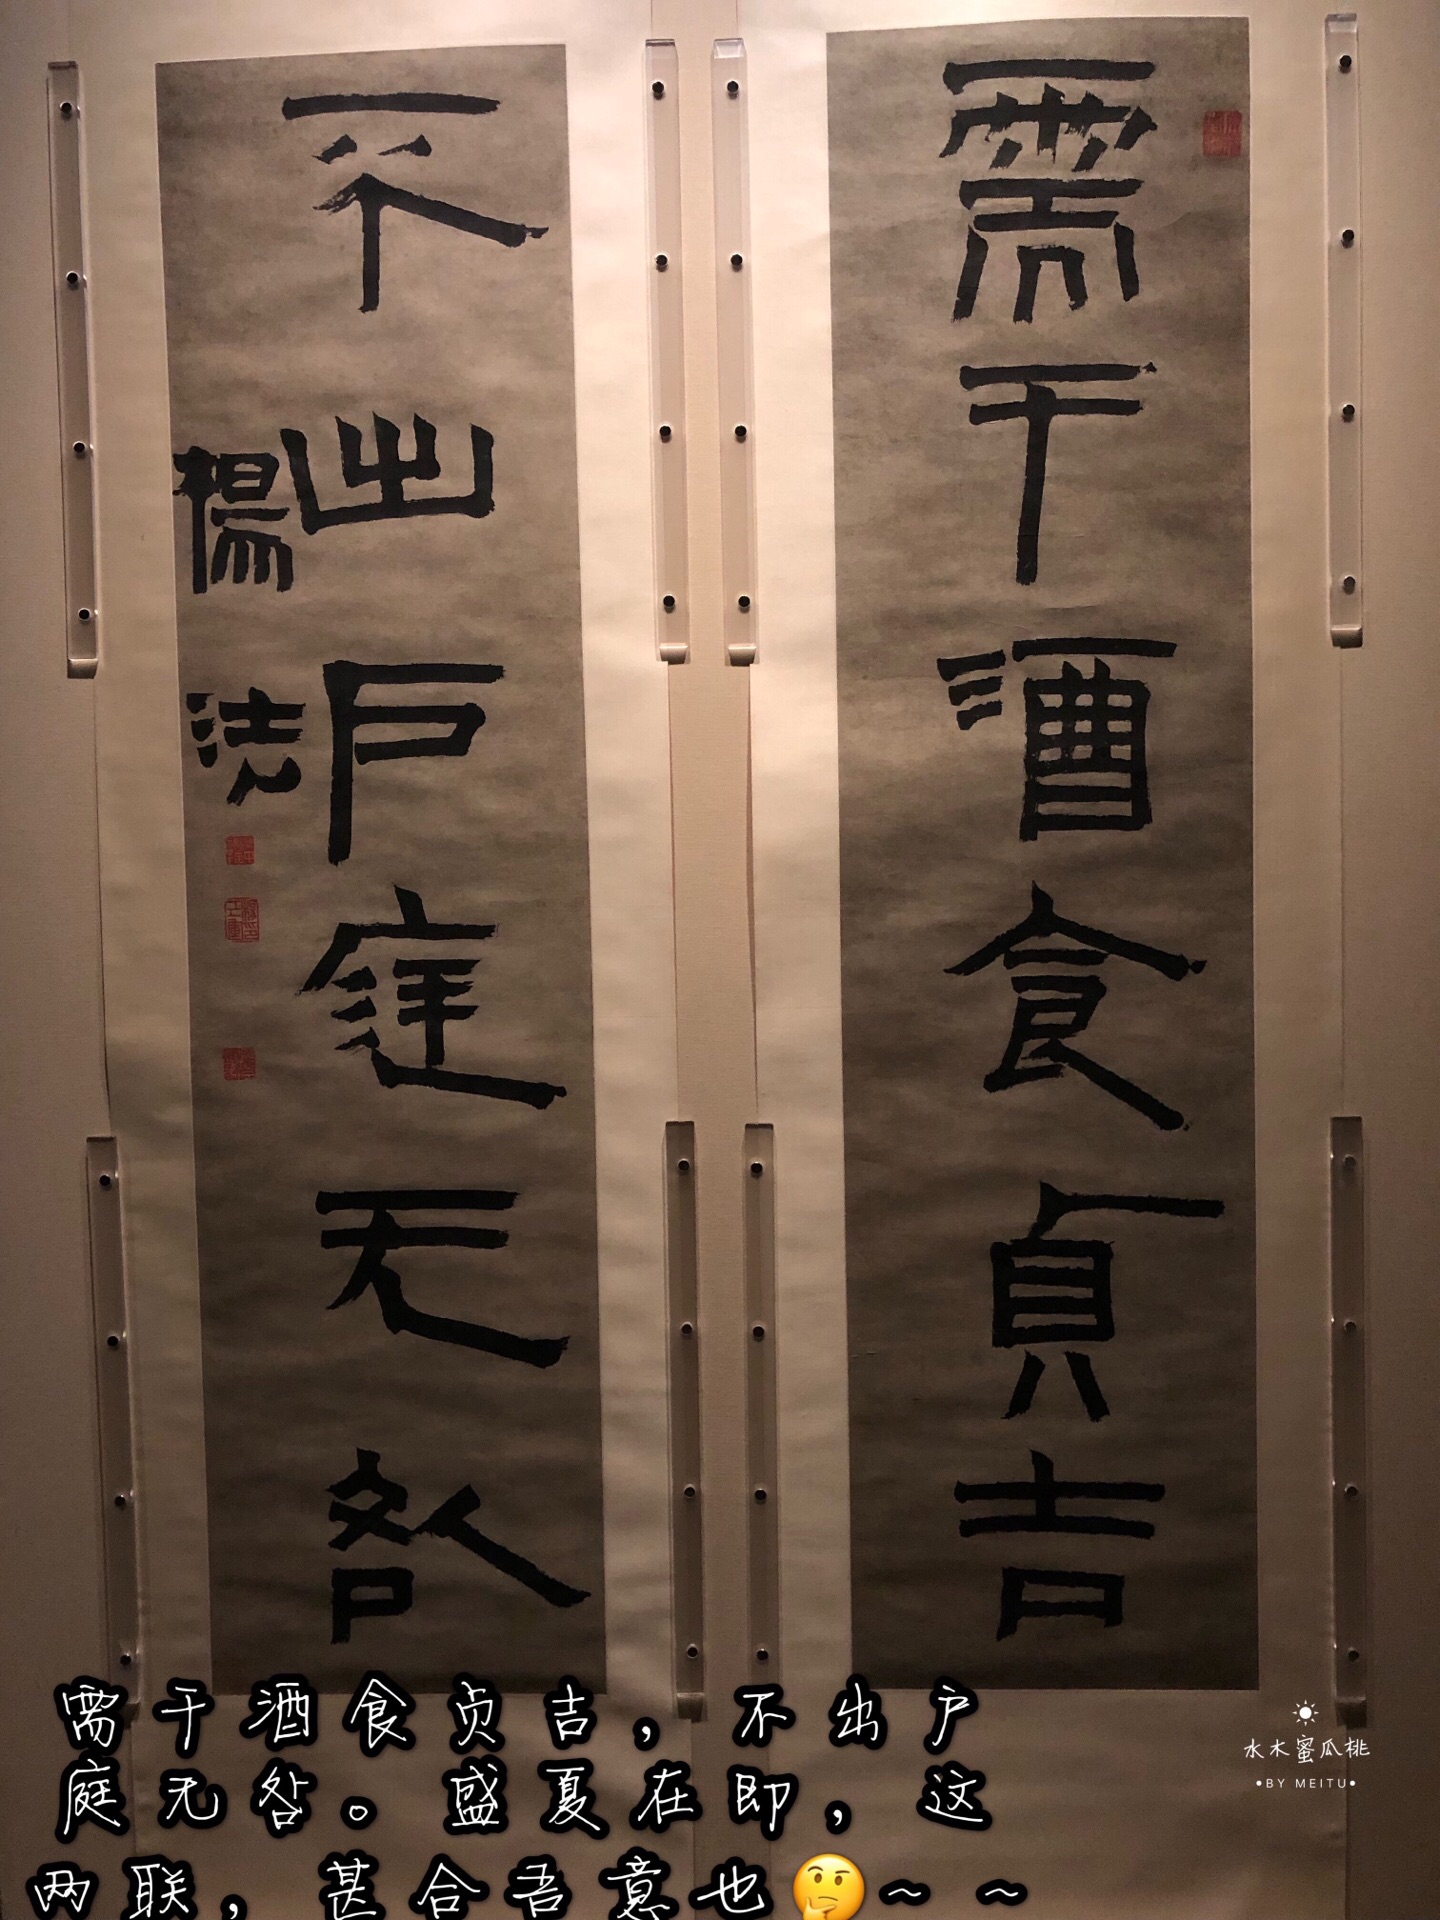 需于酒食貞吉
不出户庭无咎
楊法
需于酒食贞吉，不出户
庭无咎。盛夏在即，这
两联，甚合吾意也🤔~ ~
水木蜜瓜桃
•BY MEITU•